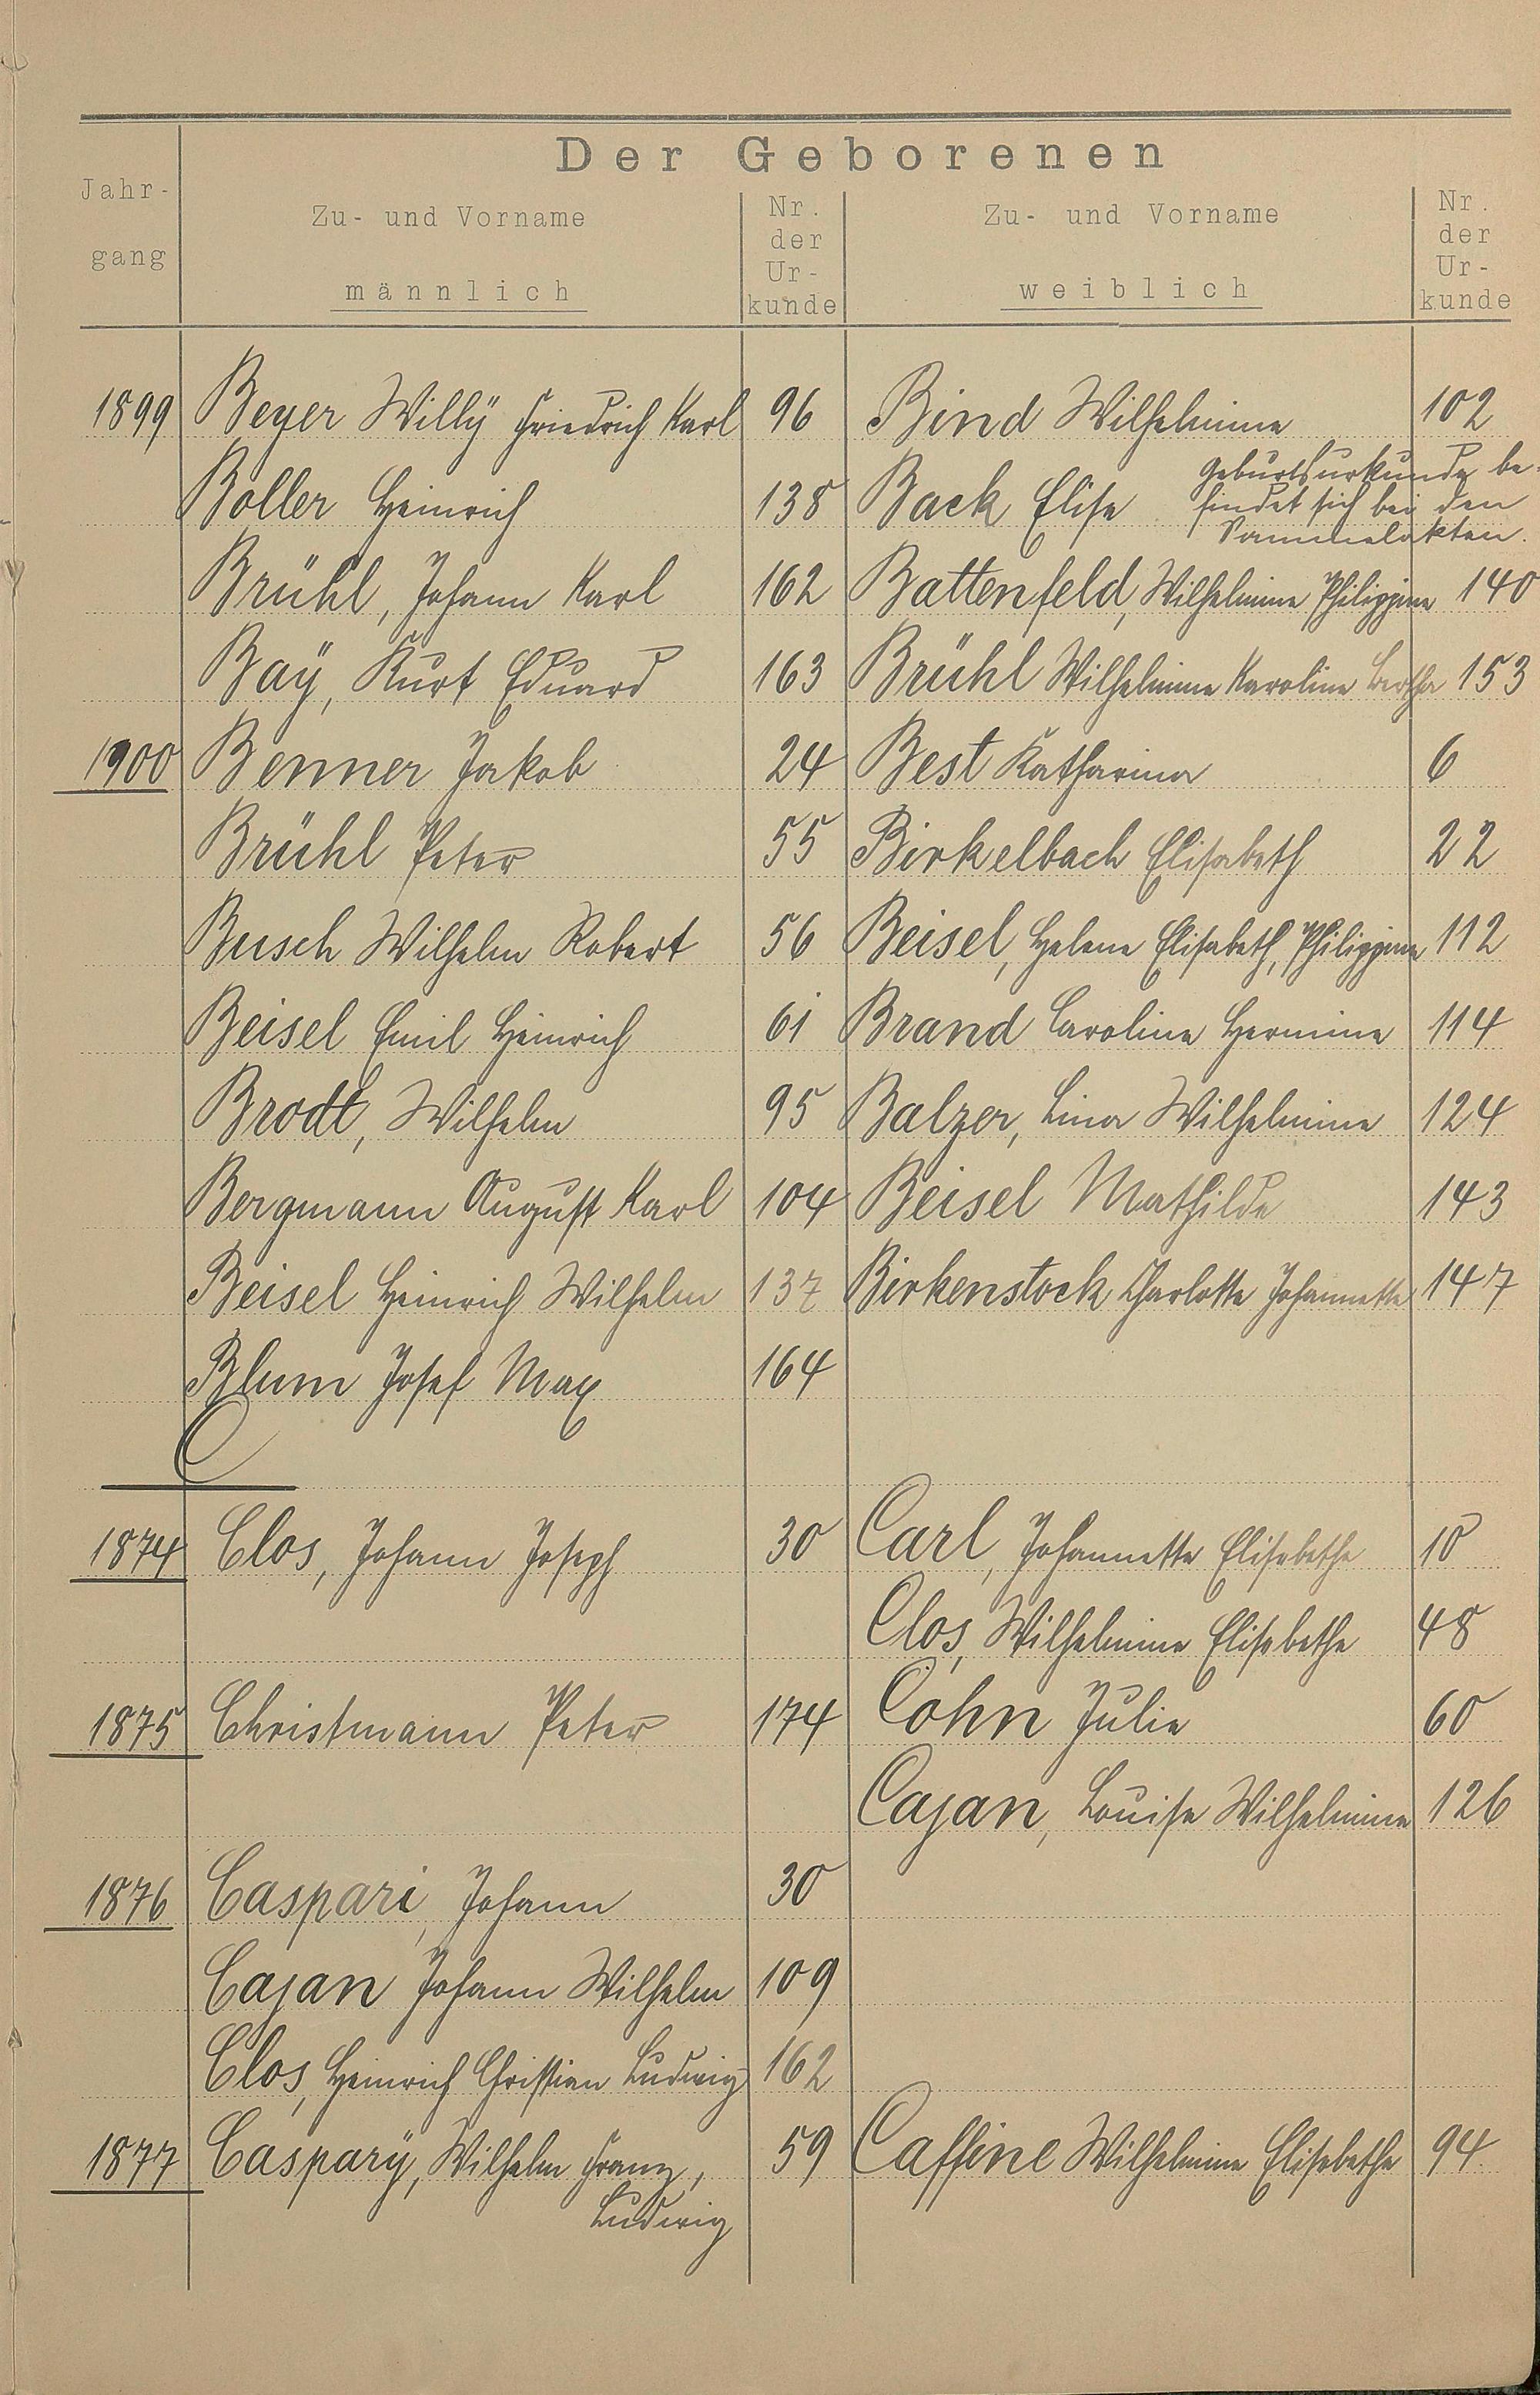 Der Geborenen
Jahr-
gang
Zu- und Vorname
männlich
Nr.
der
Ur-
kunde
Zu- und Vorname
weiblich
Nr.
der
Ur-
kunde
1899 Beyer Willÿ Friedrich Karl 96 Bind Wilhelmine 102
Boller Heinrich 138 Back Elise Geburtsurkunde be-
findet sich bei den
Sammelakten.
Brühl, Johann Karl 162 Battenfeld, Wilhelmine Philippine 140
Baÿ, Kurt Eduard 163 Brühl Wilhelmine Karoline Bertha 153
1900 Benner Jakob 24 Best Katharina 6
Brühl Peter 55 Birkelbach Elisabeth 22
Busch Wilhelm Robert 56 Beisel, Helene Elisabeth, Philippine 112
Beisel Emil Heinrich 61 Brand Caroline Hermine 114
Brodt, Wilhelm 95 Balzer, Lina Wilhelmine 124
Bergmann August Karl 104 Beisel Mathilde 143
Beisel Heinrich Wilhelm 137 Birkenstock Charlotte Johannette 147
Blum Josef Max 164
C
1874 Clos, Johann Joseph 30 Carl, Johannette Elisabethe 10
Clos, Wilhelmine Elisabethe 48
1875 Christmann Peter 174 Cohn Julie 60
Cajan, Louise Wilhelmine 126
1876 Caspari, Johann 30
Cajan Johann Wilhelm 109
Clos, Heinrich Christian Ludwig 162
1877 Casparÿ, Wilhelm Franz, 59 Caffine Wilhelmine Elisabethe 94
Ludwig